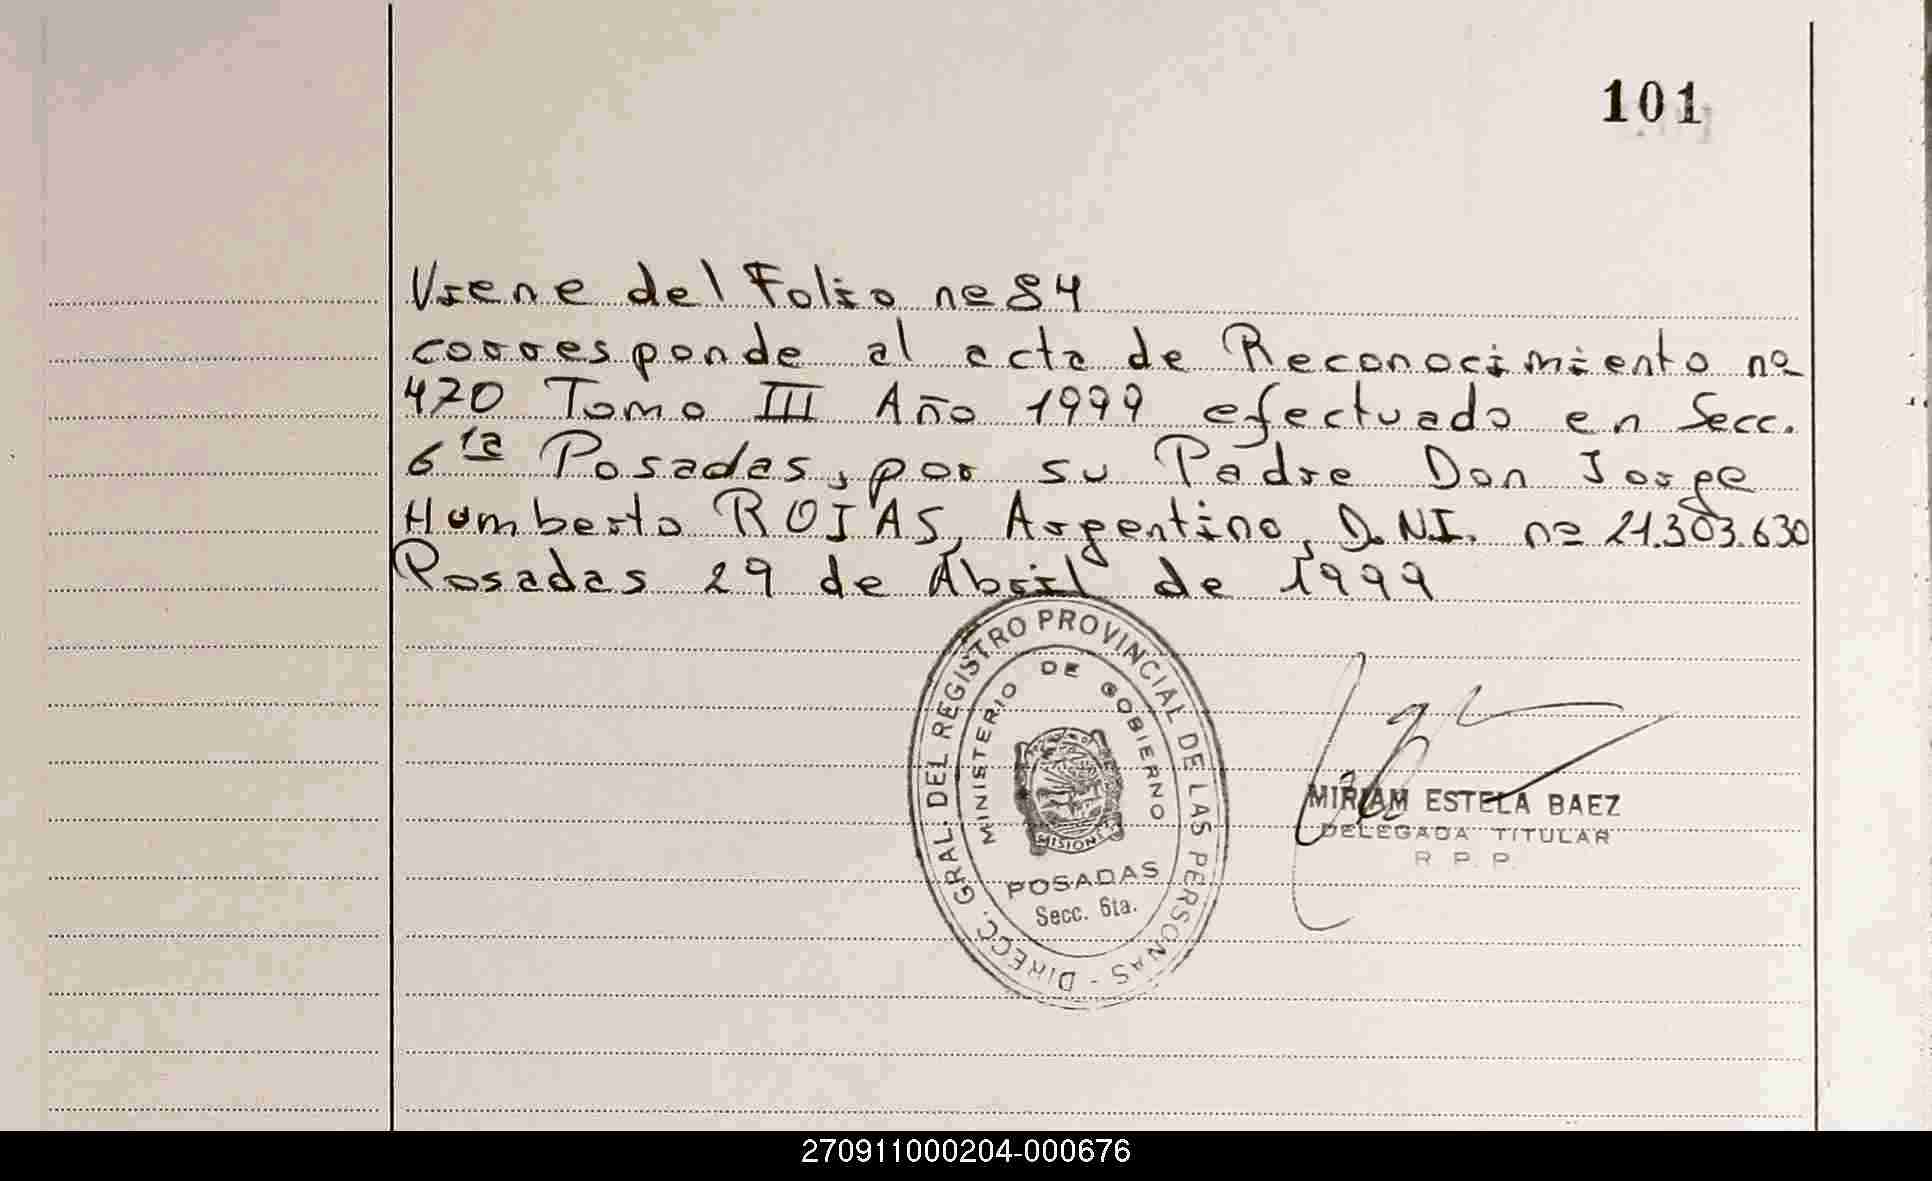 101
Viene del Folio nº 84
corresponde al acta de Reconocimiento nº
470 Tomo III Año 1999 efectuado en Secc.
6ta Posadas, por su Padre Don Jorge
Humberto ROJAS, Argentino, D.N.I. nº 21.303.630
Posadas 29 de Abril de 1999
DIRECC. GRAL. DEL REGISTRO PROVINCIAL DE LAS PERSONAS -
MINISTERIO DE GOBIERNO
MISIONES
POSADAS
Secc. 6ta.
MIRIAM ESTELA BAEZ
DELEGADA TITULAR
R. P. P.
270911000204-000676